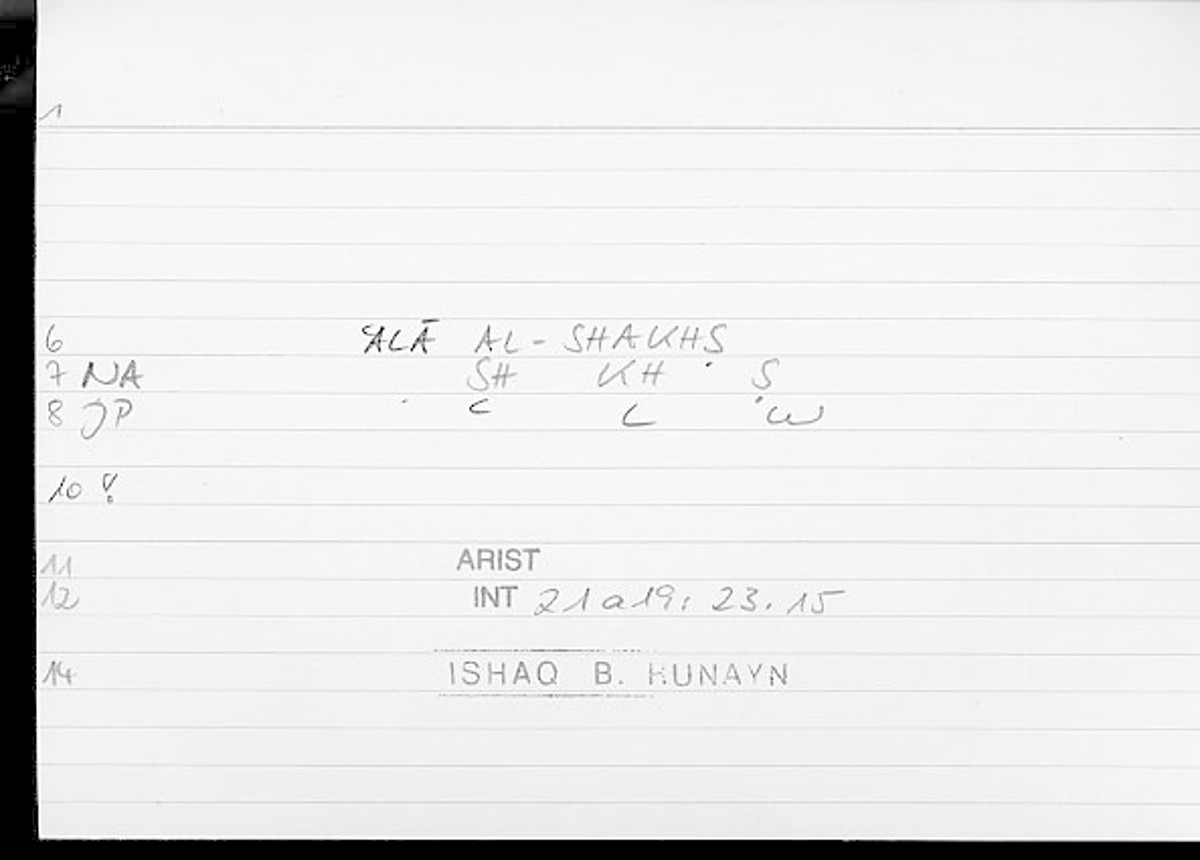 1
6 ʿALĀ AL-SHAKHṢ
7 NA SH KH Ṣ
8 JP
10 !
11 ARIST
12 INT 21a19; 23.15
14 ISHAQ B. HUNAYN